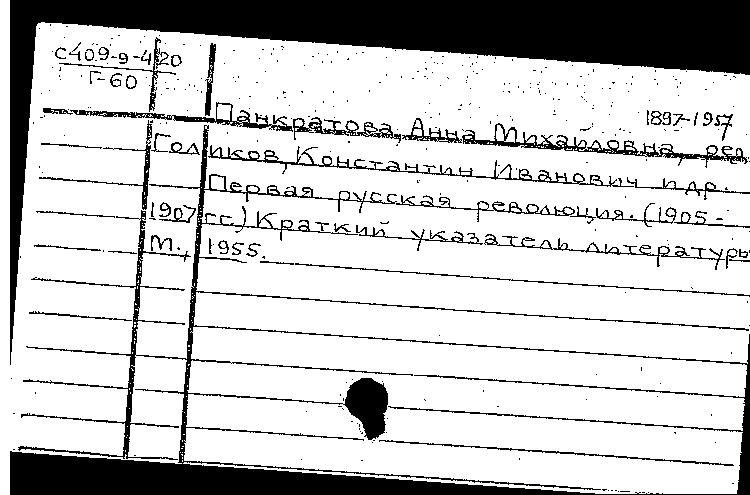 с409-9-4 20
Г-60
1897-1957
Панкратова, Анна Михайловна, ред.
Голиков, Константин Иванович и др.
Первая русская революция. (1905-
1907 гг.) Краткий указатель литературы
М., 1955.